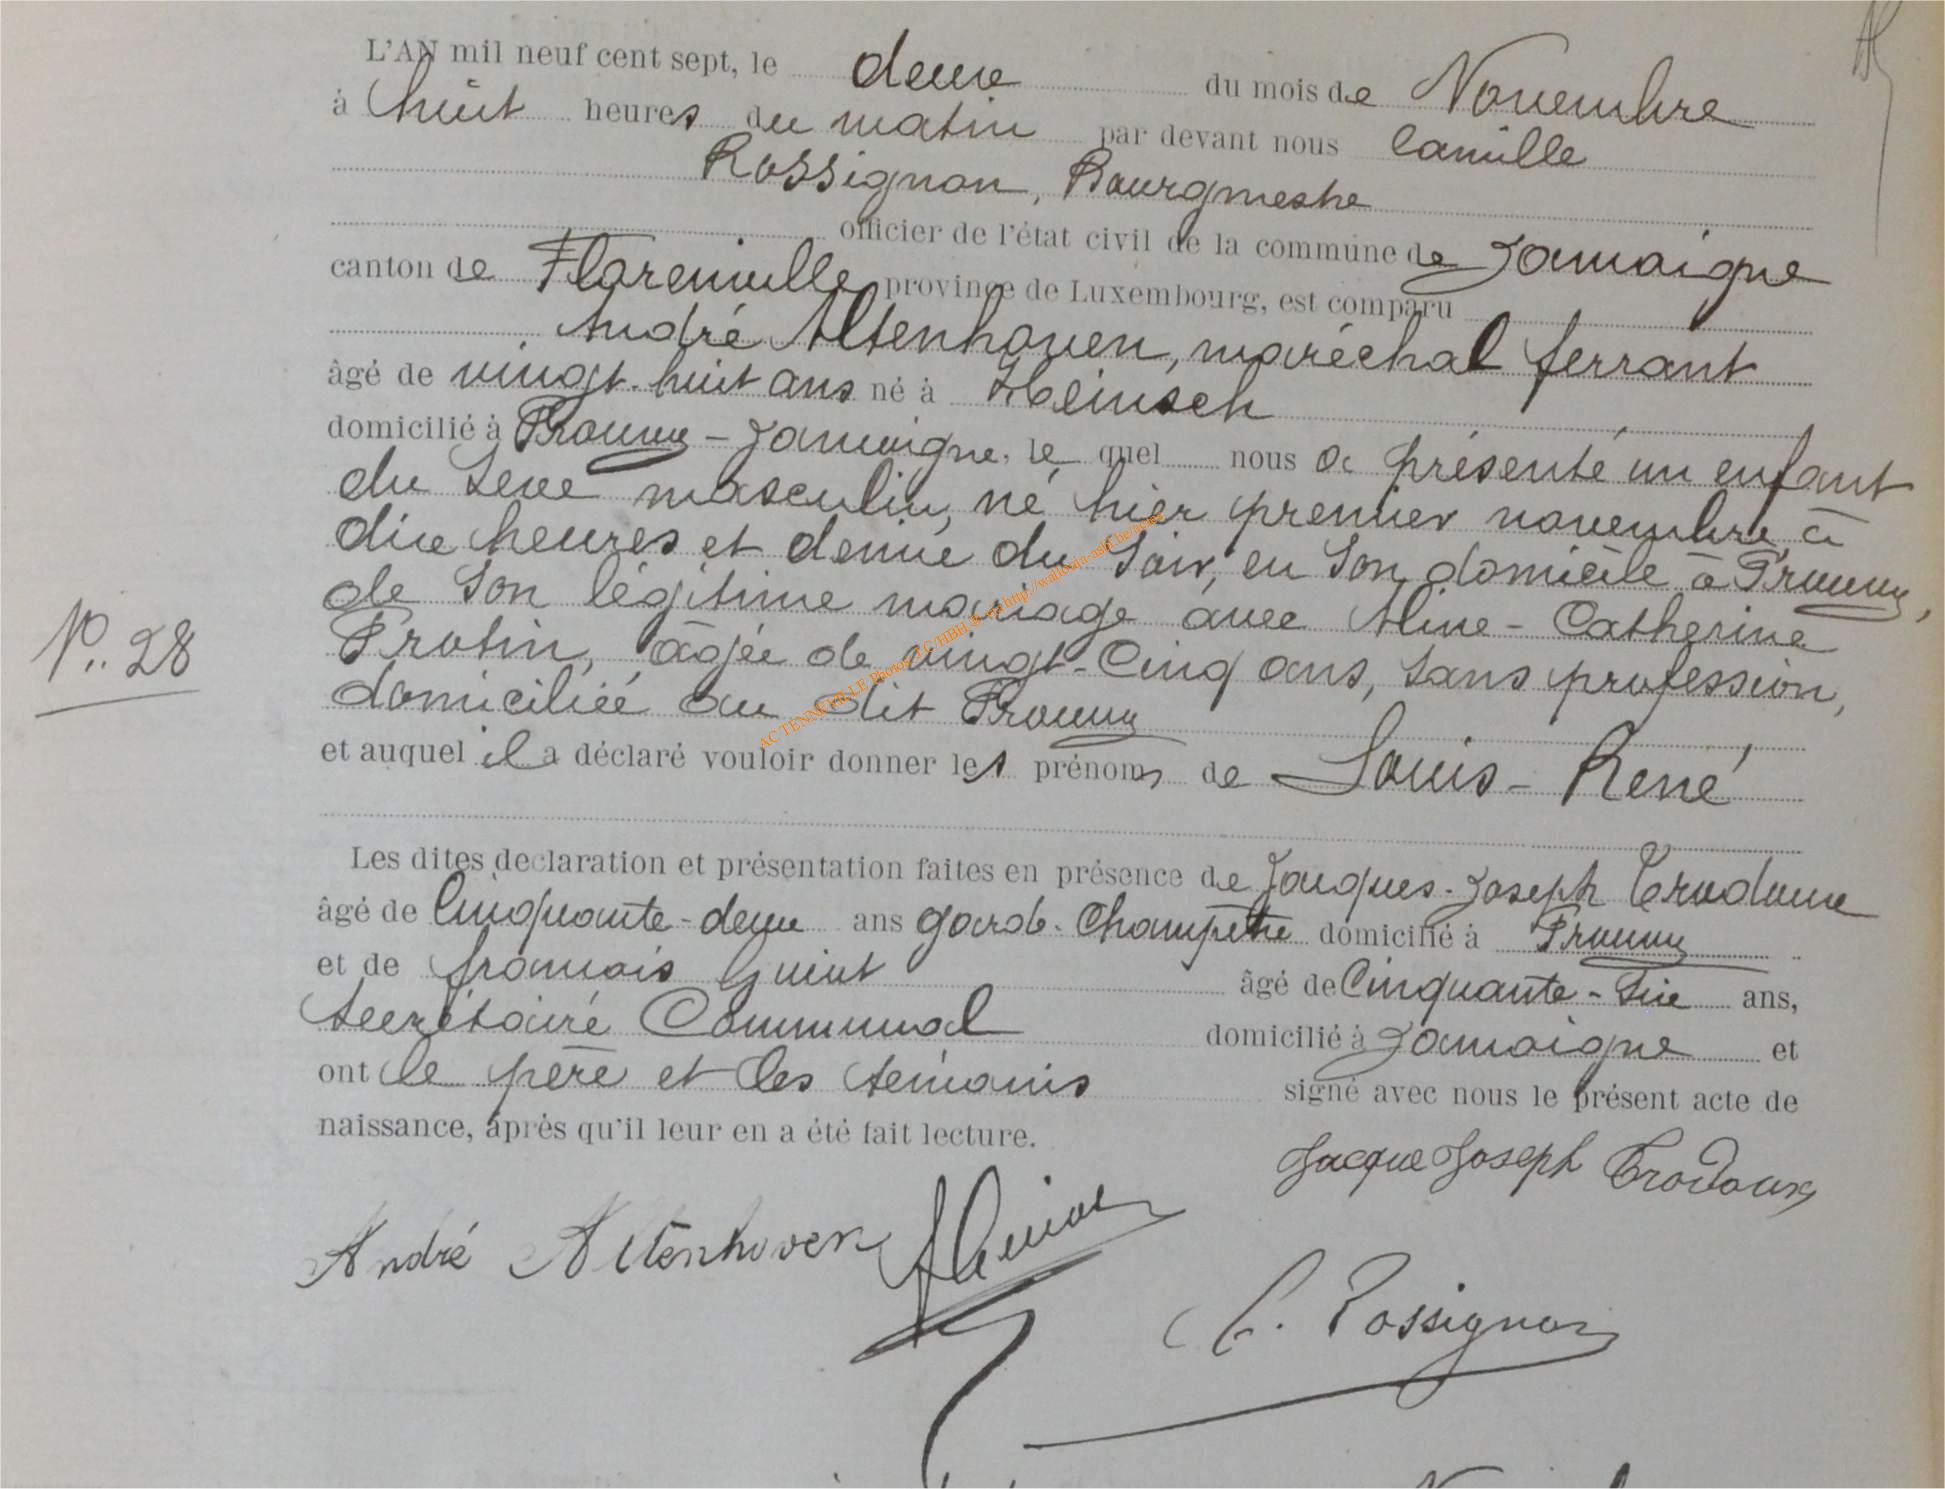 L'AN mil neuf cent sept, le deux du mois de Novembre
à huit heures du matin par devant nous Camille
Rossignon, Bourgmestre
officier de l'état civil de la commune de Jamoigne
canton de Florenville province de Luxembourg, est comparu
André Altenhoven, maréchal ferrant
âgé de vingt-huit ans né à Heinsch
domicilié à Prouvy-Jamoigne, le quel nous a présenté un enfant
du sexe masculin, né hier premier novembre, à
dix heures et demie du soir, en son domicile à Prouvy,
de son légitime mariage avec Aline-Catherine
N°. 28
Protin, âgée de vingt-cinq ans, sans profession,
domiciliée au dit Prouvy
et auquel il a déclaré vouloir donner les prénoms de Louis-René
Les dites declaration et présentation faites en présence de Jacques-Joseph Trodoux
âgé de cinquante-deux ans garde-champêtre domicilié à Prouvy
et de françois Guiot âgé de Cinquante-six ans,
secrétaire Communal domicilié à Jamoigne et
ont le père et les témoins signé avec nous le présent acte de
naissance, après qu'il leur en a été fait lecture.
Jacque Joseph Trodoux
André Altenhoven
C. Rossignon
ACTENNEVILLE Photos
http://wallonia-asbl.be/actes